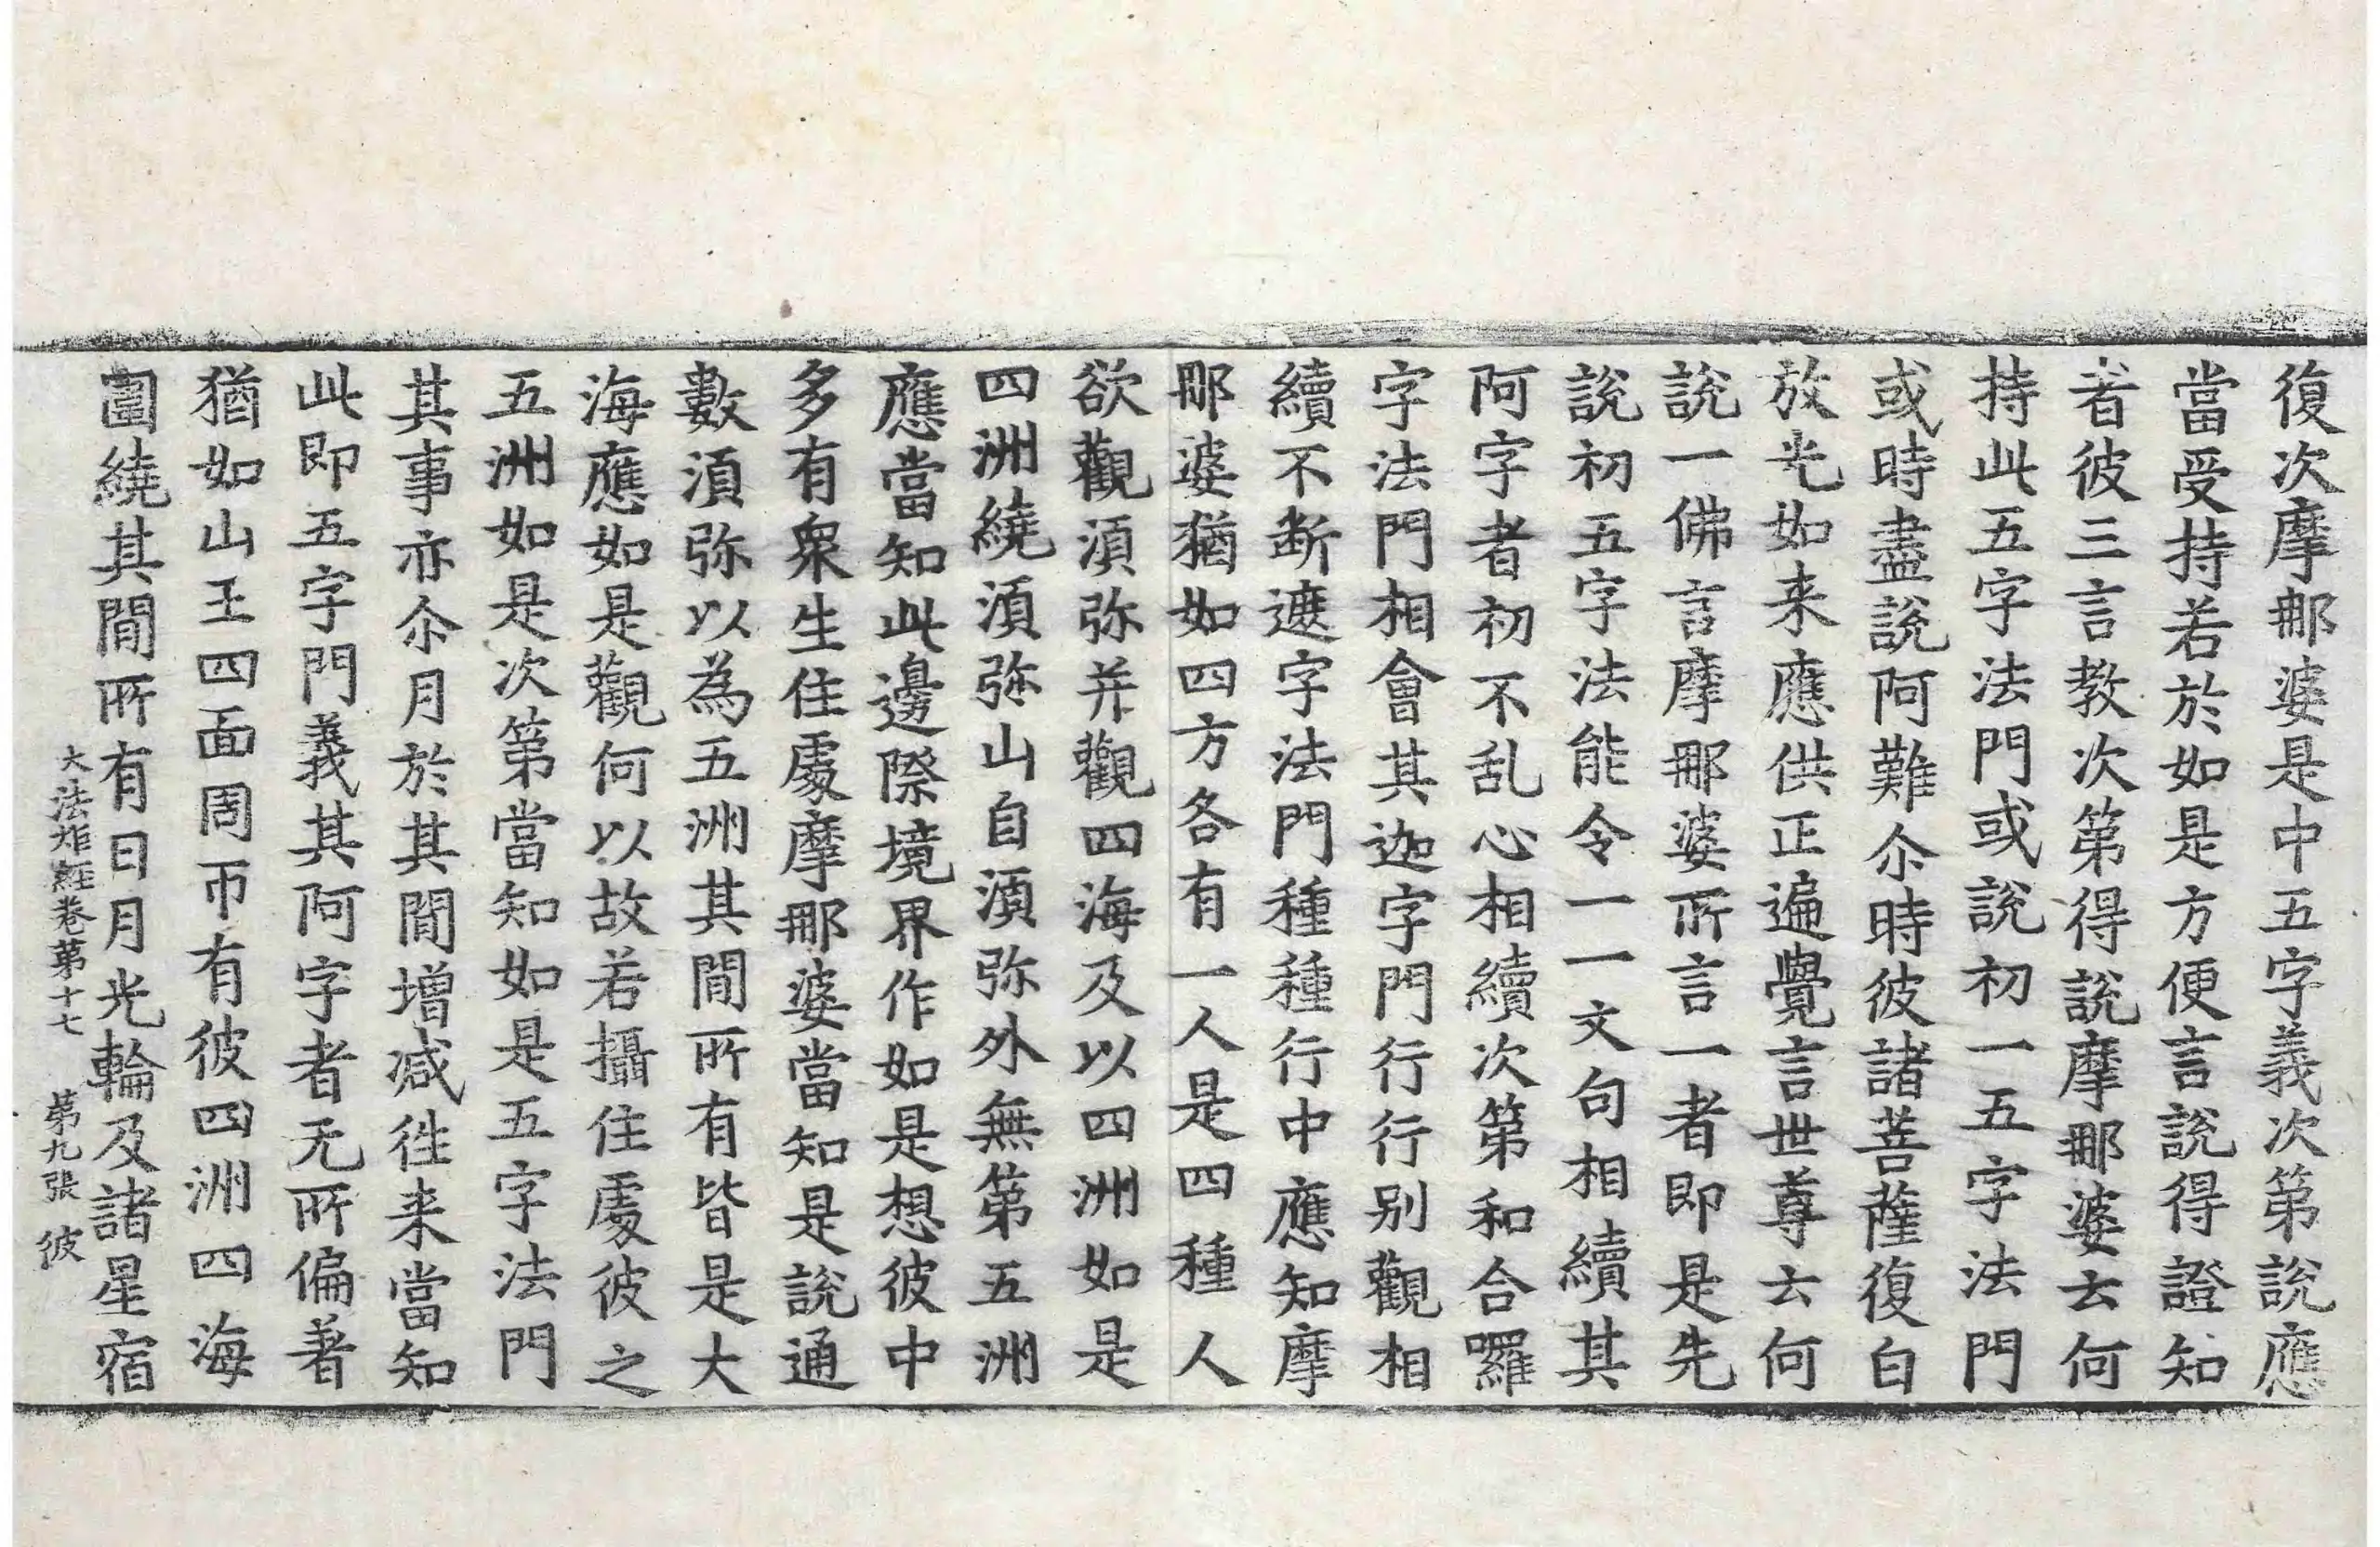 復次摩那婆是中五字義次第說應
當受持若於如是方便言說得證知
者彼三言教次第得說摩那婆云何
持此五字法門或說初一五字法門
或時盡說阿難尒時彼諸菩薩復白
放光如来應供正遍覺言世尊云何
說一佛言摩那婆所言一者即是先
說初五字法能令一一文句相續其
阿字者初不乱心相續次第和合囉
字法門相會其迦字門行行別觀相
續不斷遮字法門種種行中應知摩
那婆猶如四方各有一人是四種人
欲觀湏弥并觀四海及以四洲如是
四洲繞湏弥山自湏弥外無第五洲
應當知此邊際境界作如是想彼中
多有衆生住處摩那婆當知是說通
數湏弥以為五洲其間所有皆是大
海應如是觀何以故若攝住處彼之
五洲如是次第當知如是五字法門
其事亦尒月於其間增減徃来當知
此即五字門義其阿字者无所偏著
猶如山王四面周帀有彼四洲四海
圍繞其間所有日月光輪及諸星宿
大法炬經卷第十七 第九張 彼